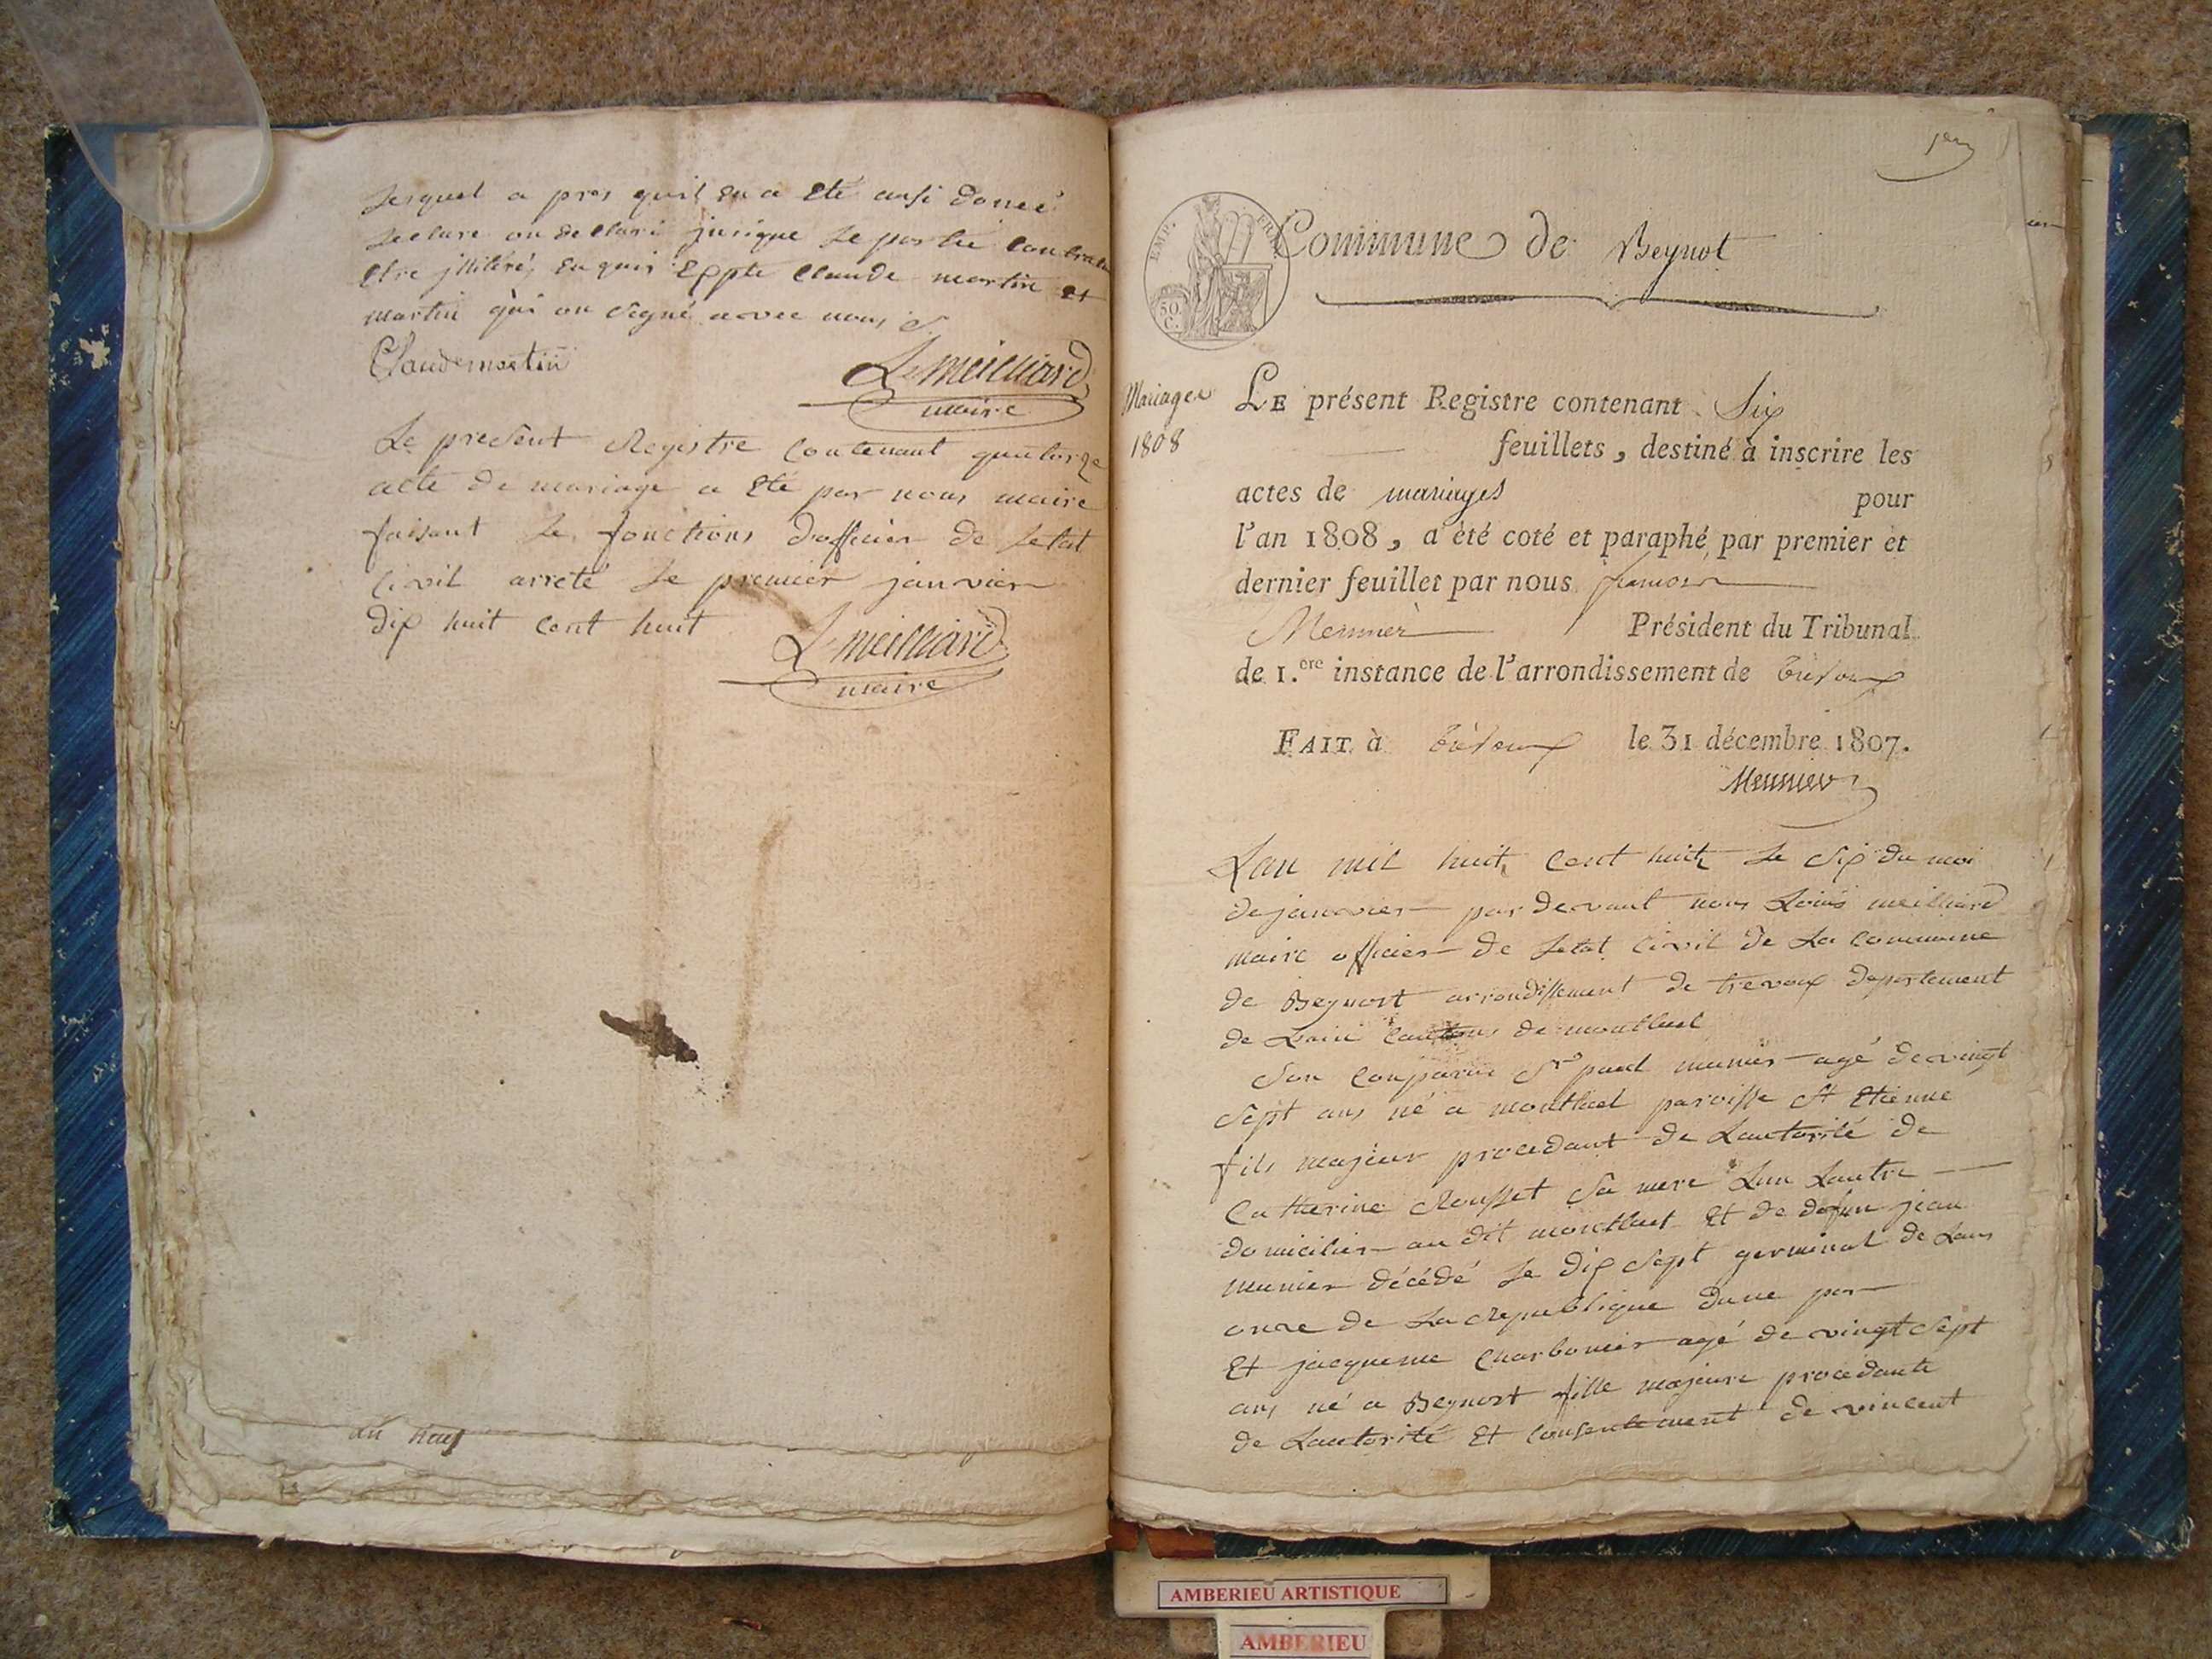 Lesquel a pres quil en a Eté ausi donné
lecture on declaré jusique le partie Contra
Etre jlliteré, Enquis Epptè Claude martin Et
martin qùi on Signé avec nous
Claudemartin
L. meilliard
maire
Le present Registre Contenant quatorze
acte de mariage a Eté par nous maire
faisant le, fonctions d'officier de Letat
Civil arreté le premier janvier
dix huit Cent huit
L. meilliard
maire
1er
EMP. FRAN.
50. C.
Commune de Beynot
Mariages
1808
LE présent Registre contenant Six
feuillets, destiné à inscrire les
actes de mariages pour
l'an 1808, a été coté et paraphé par premier et
dernier feuillet par nous
Meunier Président du Tribunal
de 1.ere instance de l'arrondissement de Trévoux
FAIT à Trévoux le 31 décembre 1807.
Meunier
Lan mil huit Cent huit Le Six du moi
de janvier par devant nous Loüis meilliard
maire officier de Letat Civil de La Commune
de Beynost arrondissement de trevoux departement
de Lain Cantons de montluel
Son Conparüe Sr paul munier agé de vingt
Sept ans né a montluel paroisse St Etienne
fils majeur procedant de Lautorité de
Catherine Rousset Sa mere Lun Lautre
domicilier au dit montluel Et de defun jean
munier décédé Le dix Sept germinal de Lans
onze de La Republique dune par
Et jacqueme Charbonier agé de vingt Sept
ans né a Beynost fille majeure procedante
de Lautorité Et Consentement de vincent
AMBERIEU ARTISTIQUE
AMBERIEU